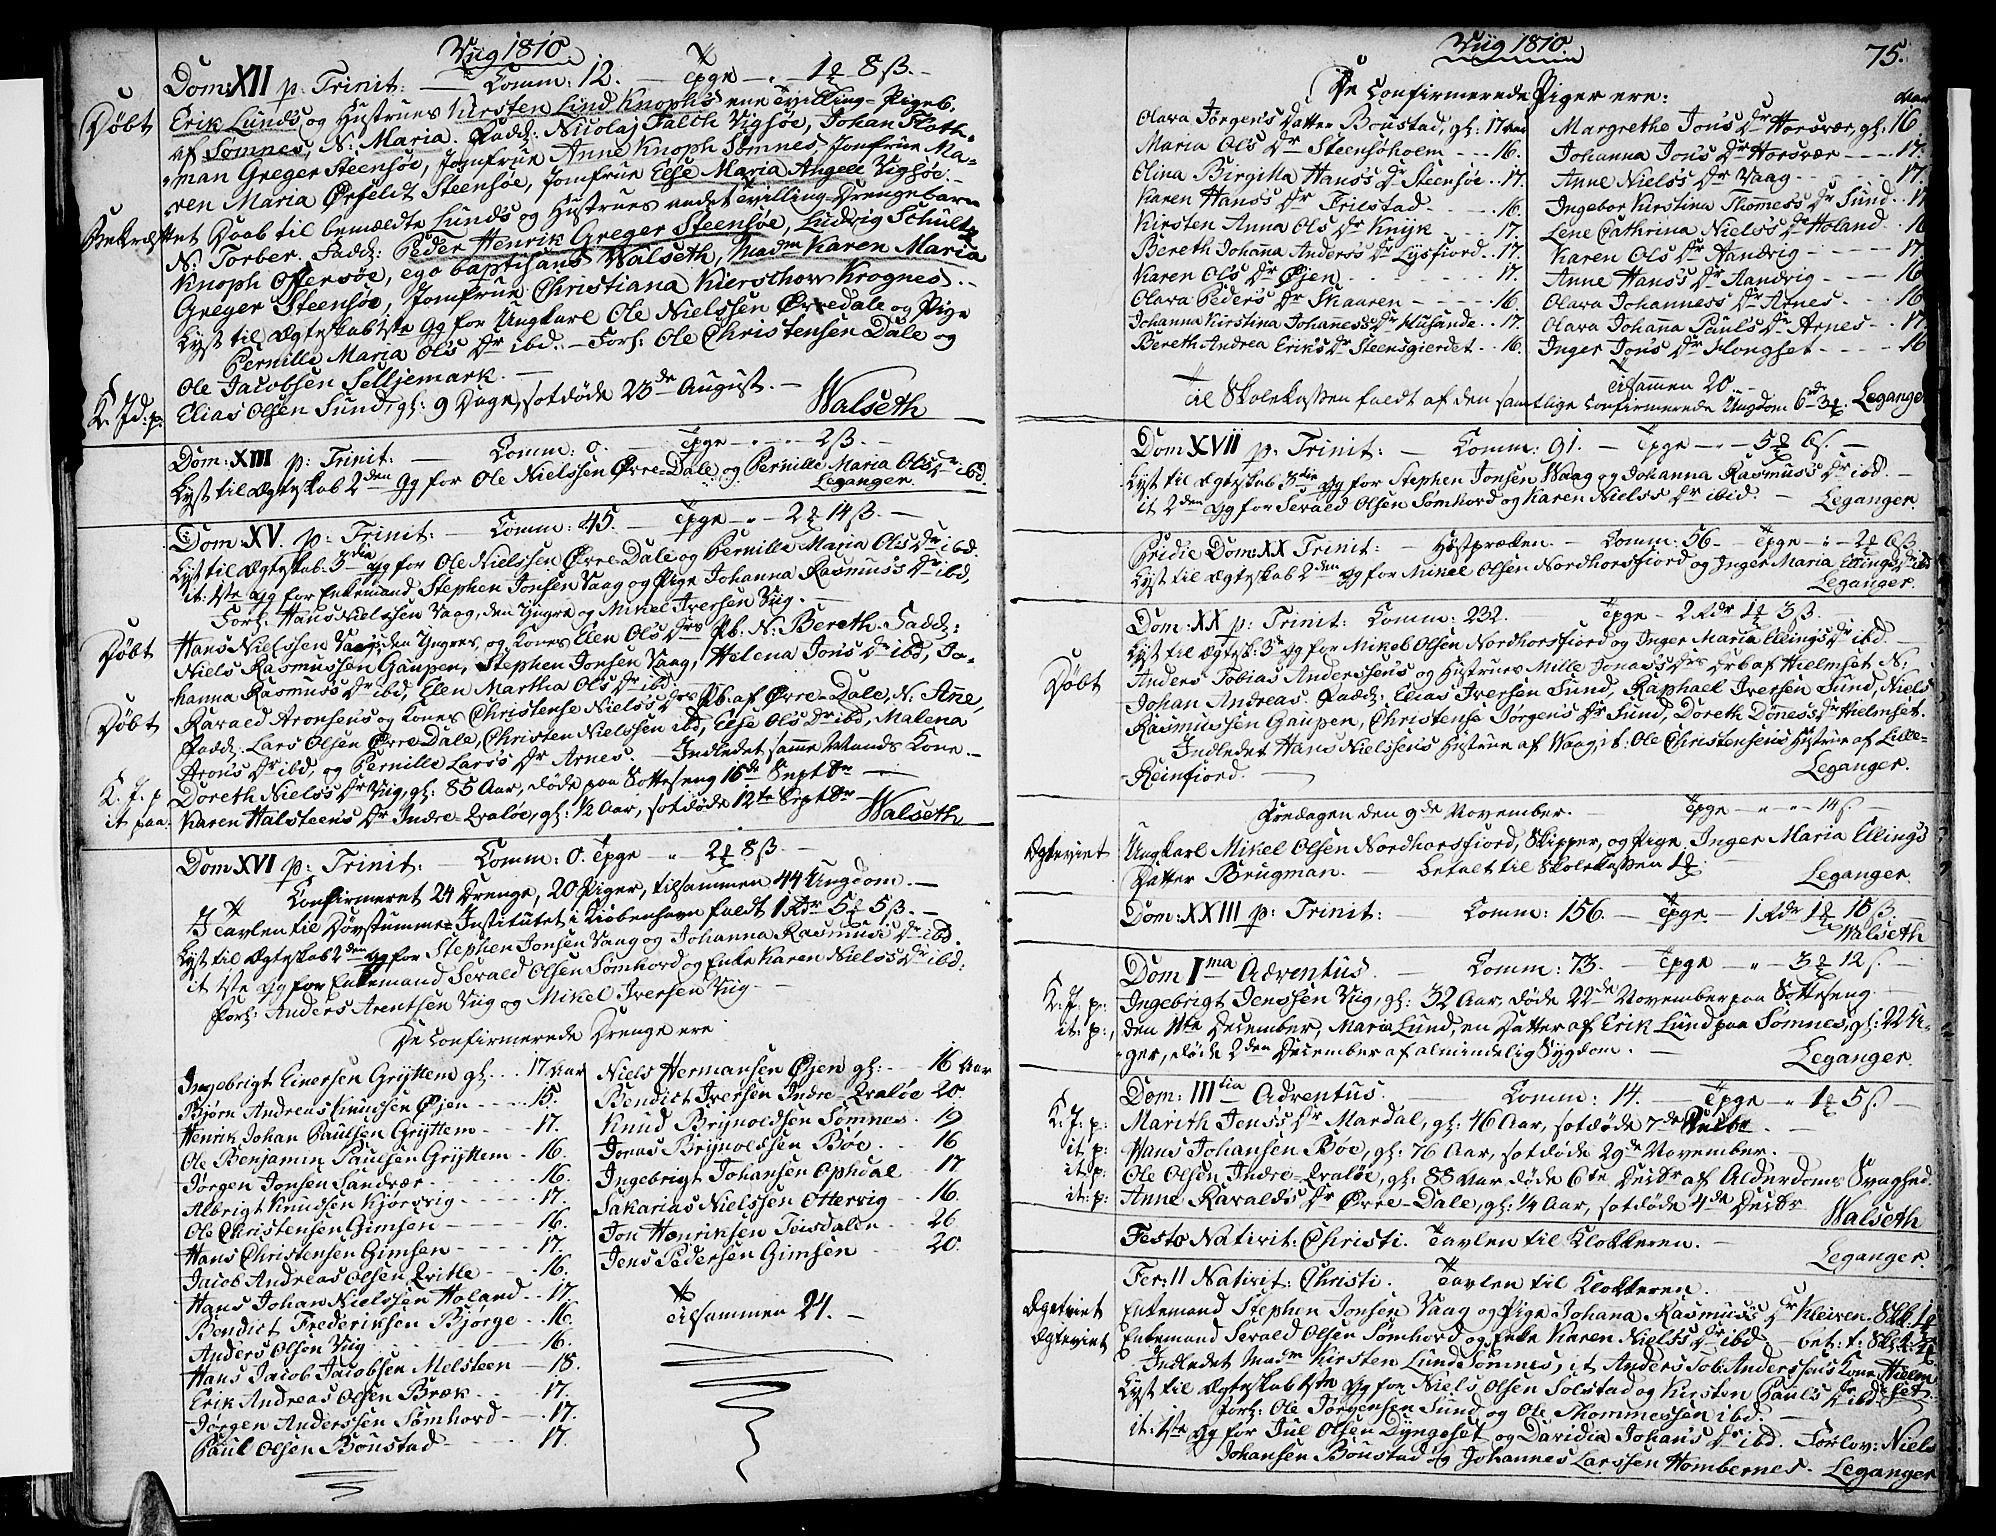 Viig 1810.
Dom: XII p. Trinit: — Comm: 12. — Tpge — " — 1 8 ß. —
Døbt
Erik Lunds og Hustrues Kirsten Lind Knophs ene Tvilling-Pigeb.
af Sømnes, N: Maria. Fadd: Nicolaj Falch Vigsøe, Johan
man Greger Steensøe, Jomfrue Anne Knoph Sømnes, Jomfrue Ma-
ren Maria Ørfeldt Steensøe, Jomfrue Else Maria Angell Vigsøe. —
Bekræftet Daab til bemældte Lunds og Hustrues andet Tvilling-Drengebarn
N: Torber. Fadd: Peder Henrik Greger Steensøe, Ludvig Schultz
Knoph Offersøe, ego baptisans Walseth, Madm Karen Maria
Greger Steensøe, Jomfrue Christiana Kiersthow Krognes. —
Lyst til Ægteskab 1ste Gg for Ungkarl Ole Nielssen Øvredale og Pige
Pernille Maria Ols Dr ibd. — Forl: Ole Christensen Dale og
Ole Jacobsen Selljemark. —
K. Jd: p:
Elias Olsen Sund, gl: 9 Dage, sotdøde 23de August. — Walseth
Dom: XIII p: Trinit: — Comm: 0. Tpge — " — 2 ß. —
Lyst til Ægteskab 2den Gg for Ole Nielssen Øvre-Dale og Pernille Maria Ols Dr ibd.
Leganger.
Dom: XV. p: Trinit: — Comm: 45. — Tpge — " — 2 14 ß. —
Lyst til Ægteskab 3die Gg for Ole Nielssen Øvre-Dale og Pernille Maria Ols Dr ibd.
it: 1ste Gg for Enkemand Stephen Jonsen Vaag og Pige Johanna Rasmuss Dr ibd,
Forl: Hans Nielssen Vaag, den Yngre og Mikel Iversen Viig. —
Døbt
Hans Nielssen Vaag, den Yngres, og Kones Elen Ols Drs Pb: N: Bereth. Fadd:
Niels Rasmussen Gaupen, Stephen Jonsen Vaag, Helena Jons Dr ibd, Jo-
hanna Rasmuss Dr ibd, Elen Martha Ols Dr ibd.
Døbt
Ravald Aronsens og Kones Christense Nielss Drs Pb. af Øvre-Dale, N. Anne,
Fadd: Lars Olsen Øvre Dale, Christen Nielssen ibd, Else Ols Dr ibd, Malena
Arons Dr ibd, og Pernille Larss Dr Arnes. — Indledet samme Mands Kone. —
K. J. p
Doreth Nielss Dr Viig, gl: 85 Aar, døde paa Sotteseng 16de Septbr —
it paa.
Karen Halsteens Dr Indre-Qvaløe, gl: ½ Aar, sotdøde 12te Septbr Walseth
Dom: XVI p: Trinit: — Comm: 0. Tpge — " 2 8 ß. —
Confirmeret 24 Drenge, 20 Piger, tilsammen 44 Ungdom. —
I Tavlen til Døvstumme-Institutet i Kiøbenhavn faldt 1 Rdr 5 5 ß. —
Lyst til Ægteskab 2den Gg for Stephen Jonsen Vaag og Johanna Rasmuss Dr ibd.
it 1ste Gg for Enkemand Serald Olsen Sømhord og Enke Karen Nielss Dr ibd:
Forl: Anders Arentsen Viig og Mikel Iversen Viig. —
De Confirmerede Drenge ere
Ingebrigt Einersen Gryttem gl: . . 17 Aar
Bjørn Andreas Knudsen Øjen — — 15.
Henrik Johan Paulsen Gryttem — — 17.
Ole Benjamin Paulsen Gryttem — 16.
Jørgen Jonsen Sandvær . . 16.
Albrigt Knudsen Kjørvig — — 17.
Ole Christensen Gimsen — — 16.
Hans Christensen Gimsen — — 17.
Jacob Andreas Olsen Qvitle — — 16.
Hans Johan Nielssen Høland — 17.
Bendict Frederiksen Bjørge . . 16.
Anders Olsen Viig — — 16.
Hans Jacob Jacobsen Melsteen — 18.
Erik Andreas Olsen Bræk . . 17.
Jørgen Anderssen Sømhord — . 17.
Paul Olsen Boustad — — 17.
Niels Hermansen Øjen gl: — 16 Aar
Bendict Iversen Indre-Qvaløe 20.
Knud Brynoldsen Sømnes . 19
Jonas Brynoldsen Bøe . . 16
Ingebrigt Johansen Ophdal . . 17.
Sakarias Nielssen Ottervig . . 16.
Jon Henriksen Toisdalen . . 26
Jens Pedersen Gimsen . . 20.
Tilsammen 24. —
Viig 1810.
75.
De Confirmerede Piger ere:
Olava Jørgens Datter Boustad, gl: 17 Aar
Maria Ols Dr Steensøholm — — 16.
Olina Birgitta Hanss Dr Steensøe . . 17.
Karen Hanss Dr Frilstad — — 16.
Kirsten Anna Ols Dr Knyk — — 17.
Bereth Johanna Anderss Dr Lysfiord . . 17.
Karen Ols Dr Øjen — — 17
Olava Peders Dr Skaaren — — 16.
Johanna Kirstina Johanness Dr Husande . . 17.
Bereth Andrea Eriks Dr Steensgierdet . . 16.
Aar
Margrethe Jons Dr Horsvær, gl: 16
Johanna Jons Dr Horsvær — — 17.
Anne Nielss Dr Vaag — — 17.
Ingebor Kirstina Thommess Dr Sund . . 17
Lene Cathrina Nielss Dr Høland . 16
Karen Ols Dr Aandvig — — 17.
Anne Hanss Dr Aandvig — — 16
Olava Johanness Dr Arnes — . 16
Olava Johanna Pauls Dr Arnes — . 17.
Inger Jons Dr Hongset — — 16
Tilsammen 20. —
Til Skolekassen faldt af den samtlige Confirmerede Ungdom 6 3. Leganger
Dom: XVII p: Trinit: — Comm: 91. — Tpge — " — 5 6 ß. —
Lyst til Ægteskab 3die Gg for Stephen Jonsen Vaag og Johanna Rasmuss Dr ibd. —
it 2den Gg for Serald Olsen Sømhord og Karen Nielss Dr ibid. — Leganger.
Pridie Dom: XX Trinit: — Høstprækken. — Comm: 56. — Tpge — " — 2 6 ß
Lyst til Ægteskab 2den Gg for Mikel Olsen Nordhorsfiord og Inger Maria Ellings Dr ibd
Leganger.
Dom: XX p: Trinit: Comm: 232. Tpge — 2 Rdr 1 3 ß. —
Lyst til Ægtesk: 3de Gg for Mikel Olsen Nordhorsfiord og Inger Maria Ellings Dr ibd. —
Døbt
Anders Tobias Anderssens og Hustrues Mille Jonass Drs Drb af Hielmset N:
Johan Andreas. Fadd: Elias Iversen Sund, Raphael Iversen Sund, Niels
Rasmussen Gaupen, Christense Jørgens Dr Sund, Doreth Dønness Dr Hielmset.
Indledet Hans Nielssens Hustrue af Vaag it: Ole Christensens Hustrue af Lille-
Reinfiord. — Leganger.
Fredagen den 9de November. — Tpge — " — 14 ß —
Ægteviet
Ungkarl Mikel Olsen Nordhorsfiord, Skipper, og Pige Inger Maria Ellings
Datter Brugman. — betalt til Skolekassen 1. Leganger.
Dom: XXIII p: Trinit: — Comm: 156. — Tpge — 1 Rdr 1 10 ß.
Walseth
Dom Ima Adventus. — Comm: 73. — Tpge — " — 3 12 ß. —
K. J: p:
Ingebrigt Jenssen Viig, gl: 32 Aar, døde 22de November paa Sotteseng —
it: p:,
den 1ste December, Maria Lund, en Datter af Erik Lund paa Sømnes, gl: 22 U-
ger, døde 2den December af almindelig Sygdom. — Leganger.
Dom: IIItia Adventus. Comm: 14. — Tpge — " 1 5 ß. —
K. J. p:
Marith Jenss Dr Mardal, gl: 46 Aar, sotdøde 7de Decbr. —
it: p:
Hans Johansen Bøe, gl: 76 Aar, sotdøde 29de November. —
it: p.
Ole Olsen Indre-Qvaløe, gl: 88 Aar døde 6te Decbr af Alderdoms Svaghed.
it: p:
Anne Ravalds Dr Øvre-Dale, gl: ¼ Aar, sotdøde 4de Decbr Walseth
Festo Nativit: Christi. Tavlen til Klokkeren. — Leganger.
Fer: II Nativit: Christi. Tavlen til Klokkeren. —
Ægteviet
Enkemand Stephen Jonsen Vaag og Pige Johana Rasmuss Dr Kleiven.
Ægteviet
Enkemand Serald Olsen Sømhord og Enke Karen Nielss Dr ibd
Indledet Madm Kirsten Lund Sømnes, it Anders Tob: Anderssens Kone Hielm
set.
Lyst til Ægteskab 1ste Gg for Niels Olsen Solstad og Kirsten Pauls Dr ibd.
Forl: Ole Jørgensen Sund og Ole Thommessen ibd. —
it: 1ste Gg for Jul Olsen Dyngeset og Davidia Johans Dr ibd. Forlov: Niels
Johansen Boustad og Johannes Larssen Hombernes — Leganger